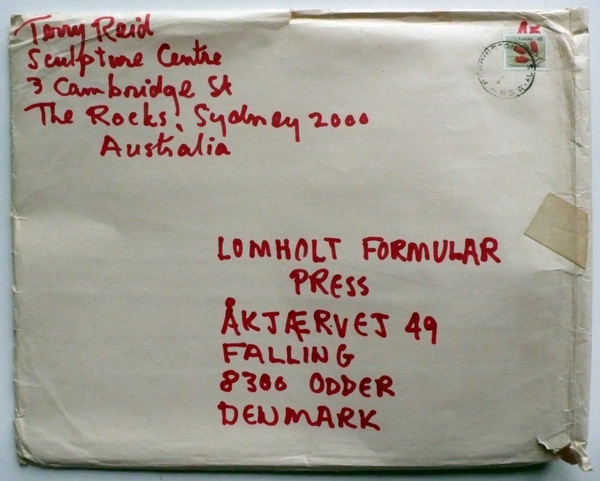 Terry Reid
Sculpture Centre
3 Cambridge St
The Rocks, Sydney 2000
Australia
LOMHOLT FORMULAR
PRESS
ÅKJÆRVEJ 49
FALLING
8300 ODDER
DENMARK